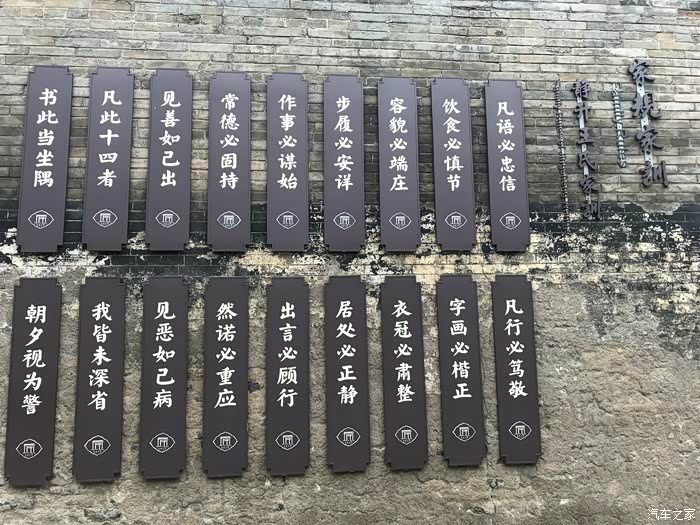 家规家训
王氏家训
凡语必忠信
凡行必笃敬
饮食必慎节
字画必楷正
容貌必端庄
衣冠必肃整
步履必安详
居处必正静
作事必谋始
出言必顾行
常德必固持
然诺必重应
见善如己出
见恶如己病
凡此十四者
我皆未深省
书此当坐隅
朝夕视为警
汽车之家